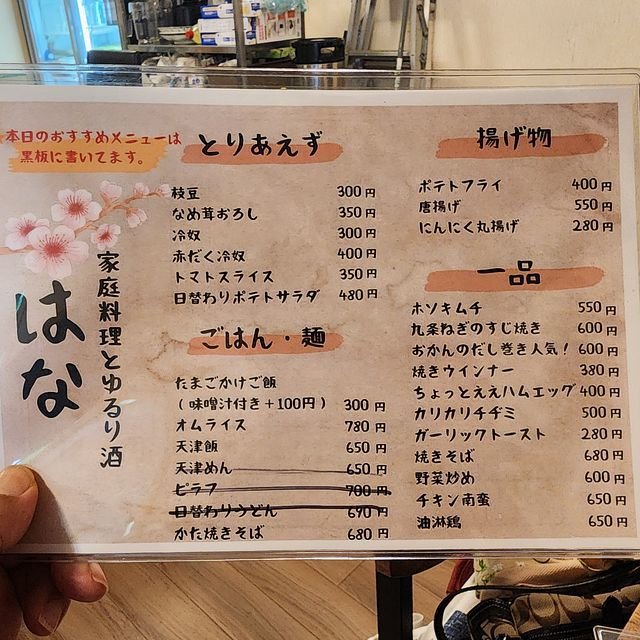 本日のおすすめメニューは
黒板に書いてます。
はな
家庭料理とゆるり酒
とりあえず
枝豆 300円
なめ茸おろし 350円
冷奴 300円
赤だく冷奴 400円
トマトスライス 350円
日替わりポテトサラダ 480円
ごはん・麺
たまごかけご飯
(味噌汁付き+100円) 300円
オムライス 780円
天津飯 650円
天津めん 650円
ピラフ 700円
日替わりうどん 690円
かた焼きそば 680円
揚げ物
ポテトフライ 400円
唐揚げ 550円
にんにく丸揚げ 280円
一品
ホソキムチ 550円
九条ねぎのすじ焼き 600円
おかんのだし巻き人気! 600円
焼きウインナー 380円
ちょっとええハムエッグ 400円
カリカリチヂミ 500円
ガーリックトースト 280円
焼きそば 680円
野菜炒め 600円
チキン南蛮 650円
油淋鶏 650円